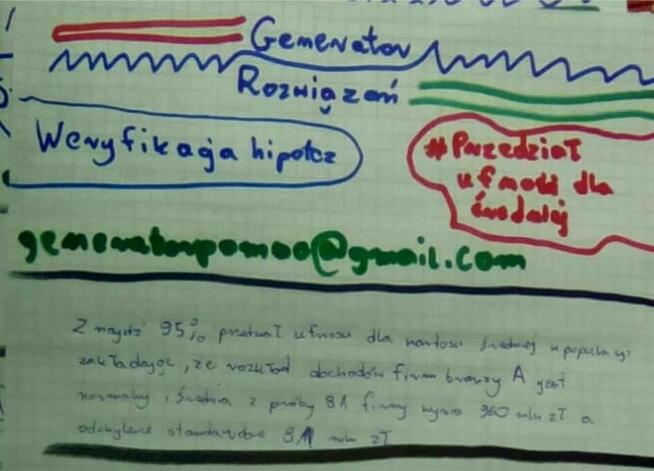 Generator
Rozwiązań
Weryfikacja hipotez
#Przedział
ufności dla
średniej
generatorpomoc@gmail.com
Znajdź 95% przedział ufności dla wartości średniej w populacji
zakładając, że rozkład dochodów firm branży A jest
normalny i średnia z próby 81 firmy wynosi 960 mln zł a
odchylenie standardowe 81 mln zł